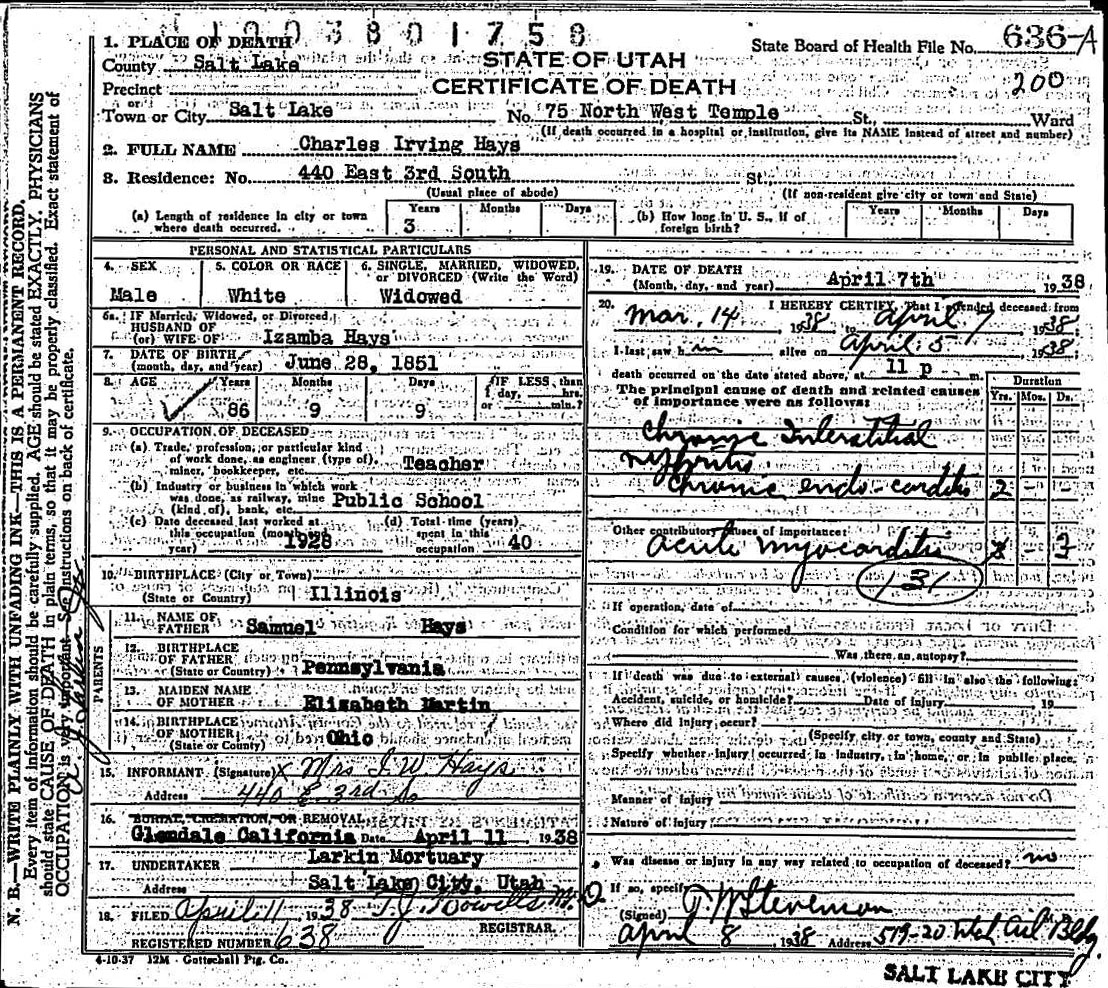 1003801758
1. PLACE OF DEATH
State Board of Health File No. 636-A
County Salt Lake
STATE OF UTAH
200
Precinct
CERTIFICATE OF DEATH
or
Town or City Salt Lake No. 75 North West Temple St., Ward
(If death occurred in a hospital or institution, give its NAME instead of street and number)
2. FULL NAME Charles Irving Hays
3. Residence: No. 440 East 3rd South St.
(Usual place of abode) (If non-resident give city or town and State)
(a) Length of residence in city or town where death occurred. Years 3 Months Days
(b) How long in U. S., if of foreign birth? Years Months Days
PERSONAL AND STATISTICAL PARTICULARS
4. SEX
Male
5. COLOR OR RACE
White
6. SINGLE, MARRIED, WIDOWED,
or DIVORCED (Write the Word)
Widowed
6a. IF Married, Widowed, or Divorced
HUSBAND OF
(or) WIFE OF Izamba Hays
7. DATE OF BIRTH
(month, day, and year) June 28, 1851
8. AGE Years 86 Months 9 Days 9 IF LESS than
1 day, hrs.
or min.?
9. OCCUPATION OF DECEASED
(a) Trade, profession, or particular kind
of work done, as engineer (type of),
miner, bookkeeper, etc. Teacher
(b) Industry or business in which work
was done, as railway, mine
(kind of), bank, etc. Public School
(c) Date deceased last worked at
this occupation (month and
year) 1928
(d) Total time (years)
spent in this
occupation 40
10. BIRTHPLACE (City or Town)
(State or Country) Illinois
PARENTS
11. NAME OF
FATHER Samuel Hays
12. BIRTHPLACE
OF FATHER
(State or Country) Pennsylvania
13. MAIDEN NAME
OF MOTHER Elizabeth Martin
14. BIRTHPLACE
OF MOTHER
(State or Country) Ohio
15. INFORMANT (Signature) x Mrs I. W. Hays
Address 440 E. 3rd So
16. BURIAL, CREMATION, OR REMOVAL
Glendale California Date April 11 1938
17. UNDERTAKER Larkin Mortuary
Address Salt Lake City, Utah
18. FILED April 11, 1938 T. J. Howells M.D.
REGISTRAR.
REGISTERED NUMBER 638
4-10-37 12M - Gottschall Ptg. Co.
19. DATE OF DEATH
(Month, day, and year) April 7th 1938
20. I HEREBY CERTIFY, That I attended deceased from
Mar. 14 1938 to April 7 1938
I last saw h im alive on April 5 1938
death occurred on the date stated above, at 11 p m.
The principal cause of death and related causes
of importance were as follows:
Duration
Yrs. Mos. Ds.
Chronic Interstitial
Nephritis
Chronic endo-carditis 2 - -
Other contributory causes of importance:
acute myocarditis x - 2
131
If operation, date of
Condition for which performed
Was there an autopsy?
If death was due to external causes (violence) fill in also the following:
Accident, suicide, or homicide? Date of injury 19
Where did injury occur?
(Specify city or town, county and State)
Specify whether injury occurred in industry, in home, or in public place.
Manner of injury
Nature of injury
Was disease or injury in any way related to occupation of deceased? no
If so, specify
(Signed) T W Stevenson
April 8, 1938 Address 519-20 Utah Bldg.
SALT LAKE CITY
N. B.—WRITE PLAINLY WITH UNFADING INK—THIS IS A PERMANENT RECORD.
Every item of information should be carefully supplied. AGE should be stated EXACTLY. PHYSICIANS
should state CAUSE OF DEATH in plain terms, so that it may be properly classified. Exact statement of
OCCUPATION is very important. See instructions on back of certificate.